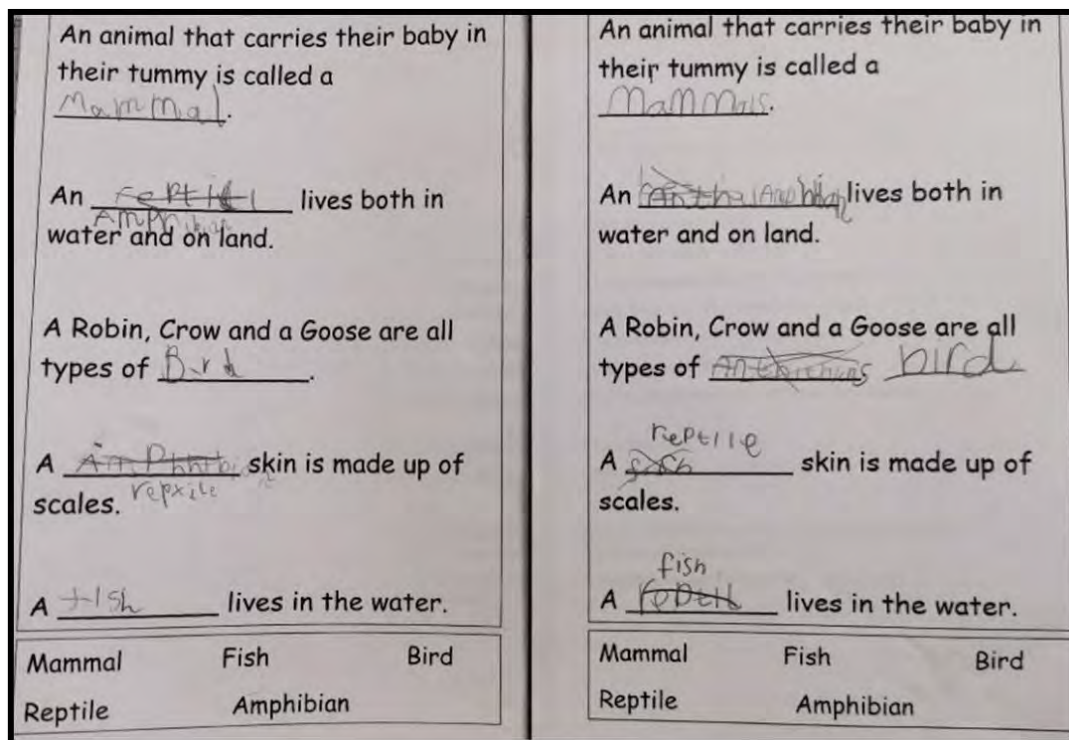 An animal that carries their baby in
their tummy is called a
Mammal.
An reptil lives both in
Amphibian
water and on land.
A Robin, Crow and a Goose are all
types of Bird.
A skin is made up of
scales. repxile
A fish lives in the water.
Mammal Fish Bird
Reptile Amphibian
An animal that carries their baby in
their tummy is called a
MaMMals.
An Amphibian lives both in
water and on land.
A Robin, Crow and a Goose are all
types of bird
reptile
A skin is made up of
scales.
fish
A lives in the water.
Mammal Fish Bird
Reptile Amphibian